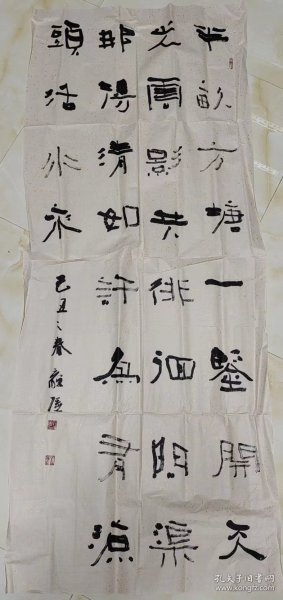 半畝方塘一鑒開天
光雲影共徘徊問渠
那得清如許為有源
頭活水來
己丑之春
孔夫子旧书网
www.kongfz.com